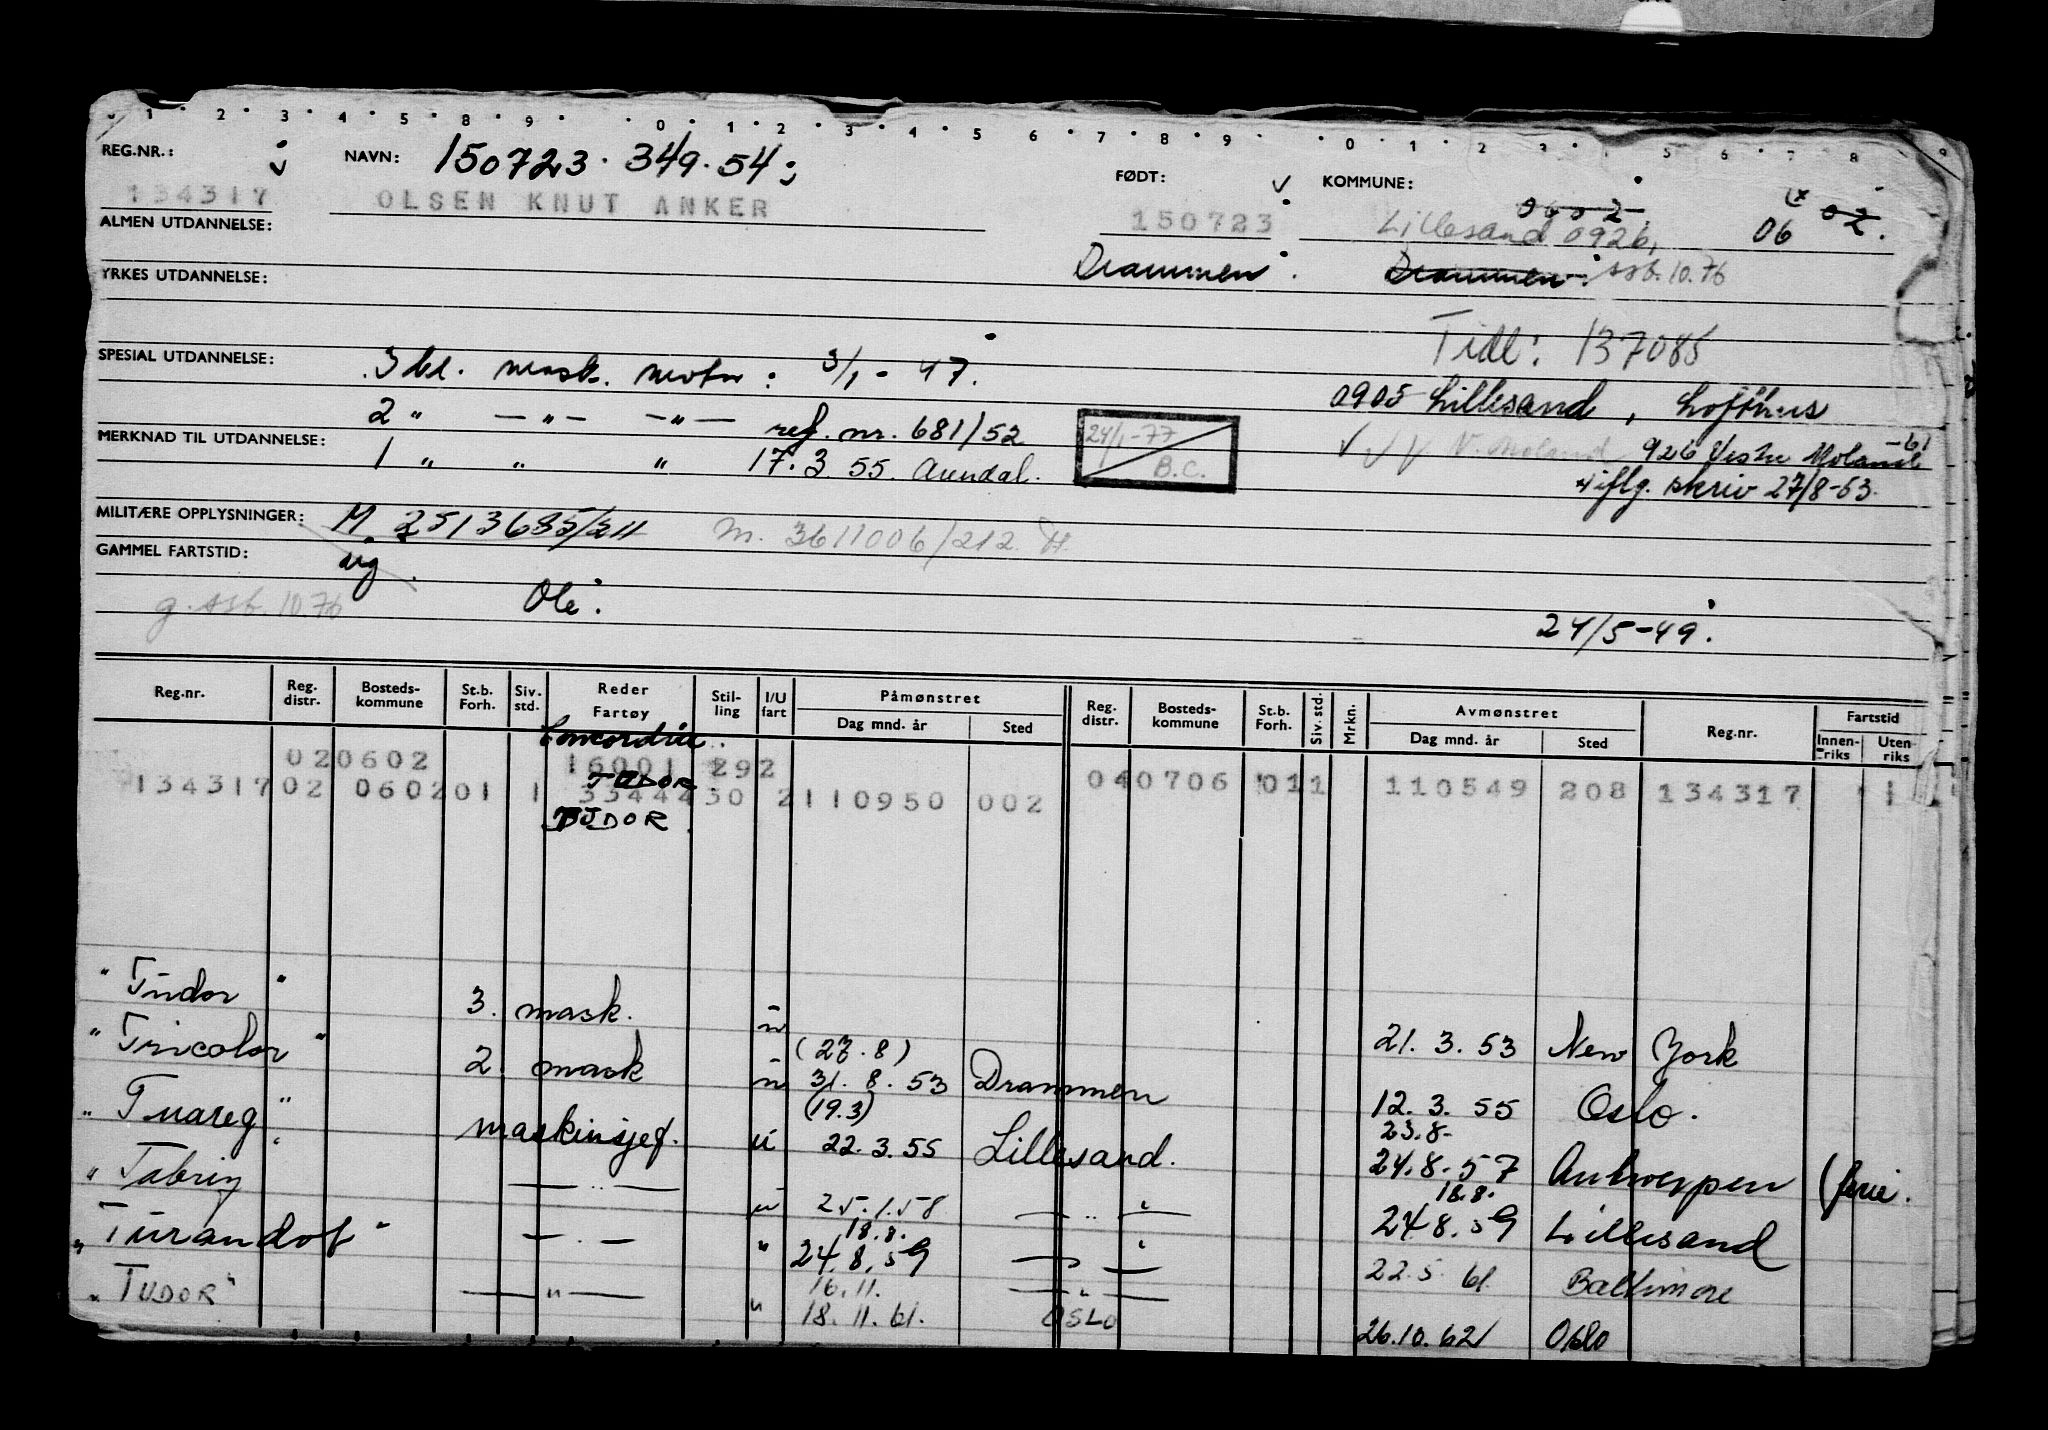 1 2 3 4 5 8 9 0 1 2 3 4 5 6 7 8 9 0 1 2 3 5 6 7 8 9
REG.NR.: NAVN: 150723. 349.54 FØDT: KOMMUNE:
134317 OLSEN KNUT ANKER 150723 Lillesand 0926, 0602 06 02.
ALMEN UTDANNELSE: Drammen. Drammen. 10.76
YRKES UTDANNELSE:
Tidl: 137085
SPESIAL UTDANNELSE: 3 kl. mask. motor: 3/1-47. 0905 Lillesand, Lofthus
2 " — " — — " — ref. nr. 681/52 24/1-77 V. Moland 926 Vestre Moland -61
MERKNAD TIL UTDANNELSE: 1 " " " 17.3 55. Arendal. B.C. iflg. skriv 27/8-53.
MILITÆRE OPPLYSNINGER: M 2513685/211 m. 3611006/212 H
GAMMEL FARTSTID:
g. 10.76 Ole. 24/5-49.
Reg.nr. Reg. distr. Bosteds- kommune St.b. Forh. Siv. std. Reder Fartøy Stil- ling I/U fart Påmønstret Dag mnd. år Sted Reg. distr. Bosteds- kommune St.b. Forh. Siv. std. Mrkn. Avmønstret Dag mnd. år Sted Reg.nr. Fartstid Innen- riks Uten- riks
Concordia.
020602 16001 292 040706 011 110549 208 134317 1
134317 02 0602 01 1 33444 30 2 110950 002
TUDOR
TUDOR
" Tudor " 3. mask. u 21. 3. 53 New York
" Tricolor " 2. mask u (27.8) 31. 8. 53 Drammen 12. 3. 55 Oslo.
" Tuareg " maskinsjef. u (19.3) 22.3.55 Lillesand. 23.8- 24.8.57 Antwerpen (ferie.
" Tabriz — " — u 25.1.58 — " — 18.8. 24.8.59 Lillesand
" Turandot " — . — " 18.8. 24.8.59 — " — 22.5.61 Baltimore
" TUDOR " — " — " 16.11. 18.11.61. — " — OSLO 26.10.62 Oslo